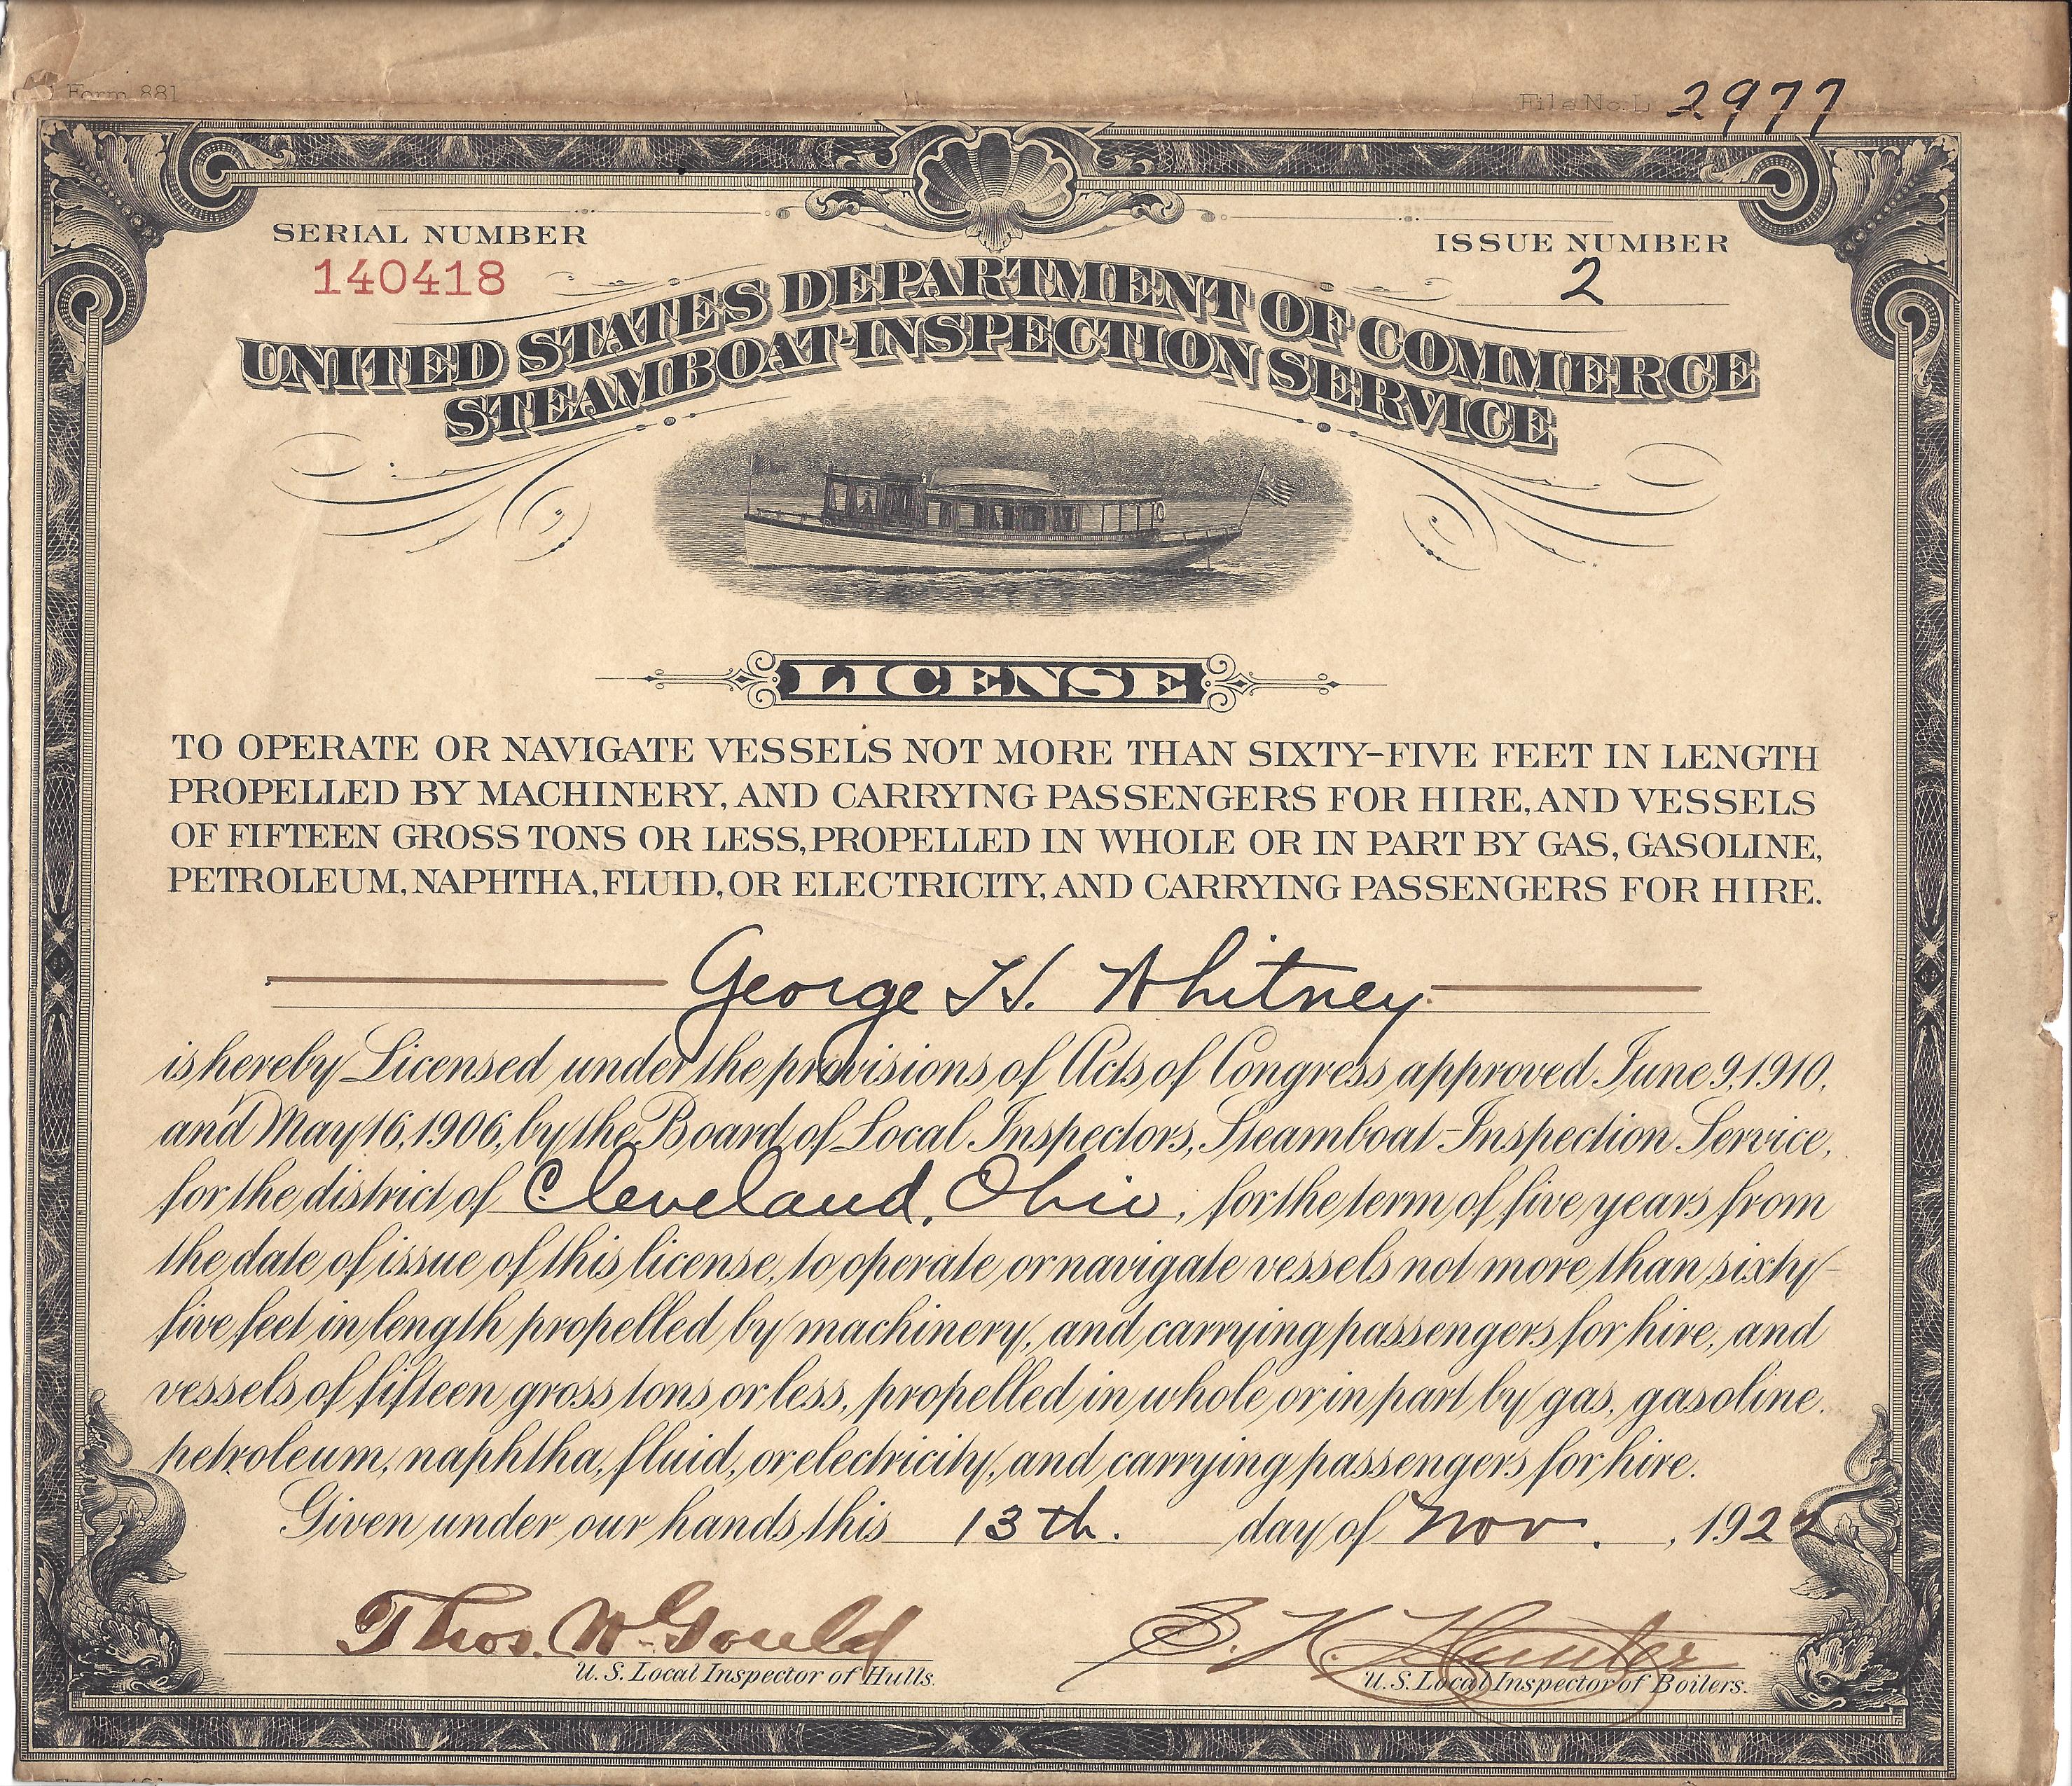 Form 881
File No. L 2977
SERIAL NUMBER
ISSUE NUMBER
140418
2
UNITED STATES DEPARTMENT OF COMMERCE
STEAMBOAT-INSPECTION SERVICE
LICENSE
TO OPERATE OR NAVIGATE VESSELS NOT MORE THAN SIXTY-FIVE FEET IN LENGTH
PROPELLED BY MACHINERY, AND CARRYING PASSENGERS FOR HIRE, AND VESSELS
OF FIFTEEN GROSS TONS OR LESS, PROPELLED IN WHOLE OR IN PART BY GAS, GASOLINE,
PETROLEUM, NAPHTHA, FLUID, OR ELECTRICITY, AND CARRYING PASSENGERS FOR HIRE.
George H. Whitney
is hereby Licensed under the provisions of Acts of Congress approved June 9, 1910,
and May 16, 1906, by the Board of Local Inspectors, Steamboat-Inspection Service,
for the district of Cleveland, Ohio, for the term of five years from
the date of issue of this license, to operate or navigate vessels not more than sixty-
five feet in length propelled by machinery, and carrying passengers for hire, and
vessels of fifteen gross tons or less, propelled in whole or in part by gas, gasoline,
petroleum, naphtha, fluid, or electricity, and carrying passengers for hire.
Given under our hands this 13th. day of Nov., 1922
Thos. W. Gould
U. S. Local Inspector of Hulls.
Hunter
U. S. Local Inspector of Boilers.